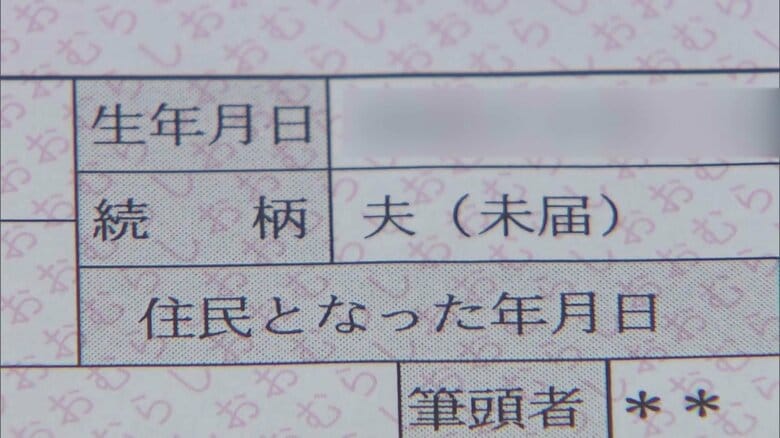 生年月日
続柄 夫（未届）
住民となった年月日
筆頭者 ＊＊